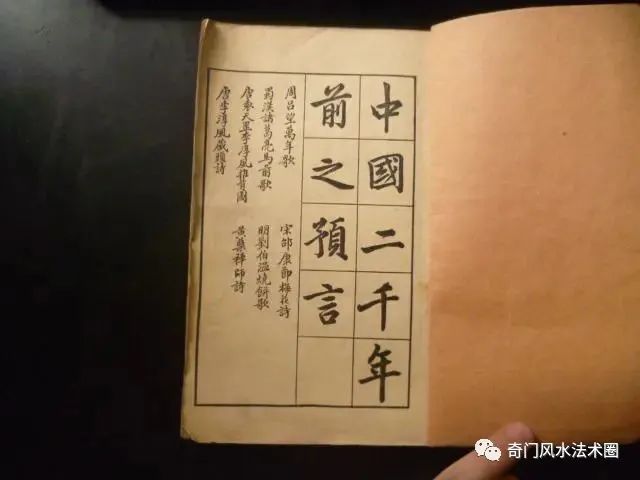 中國二千年
前之預言
周呂望萬年歌
蜀漢諸葛亮馬前歌
唐袁天罡李淳風推背圖
唐李淳風藏頭詩
宋邵康節梅花詩
明劉伯溫燒餅歌
黃蘗禪師詩
奇门风水法术圈